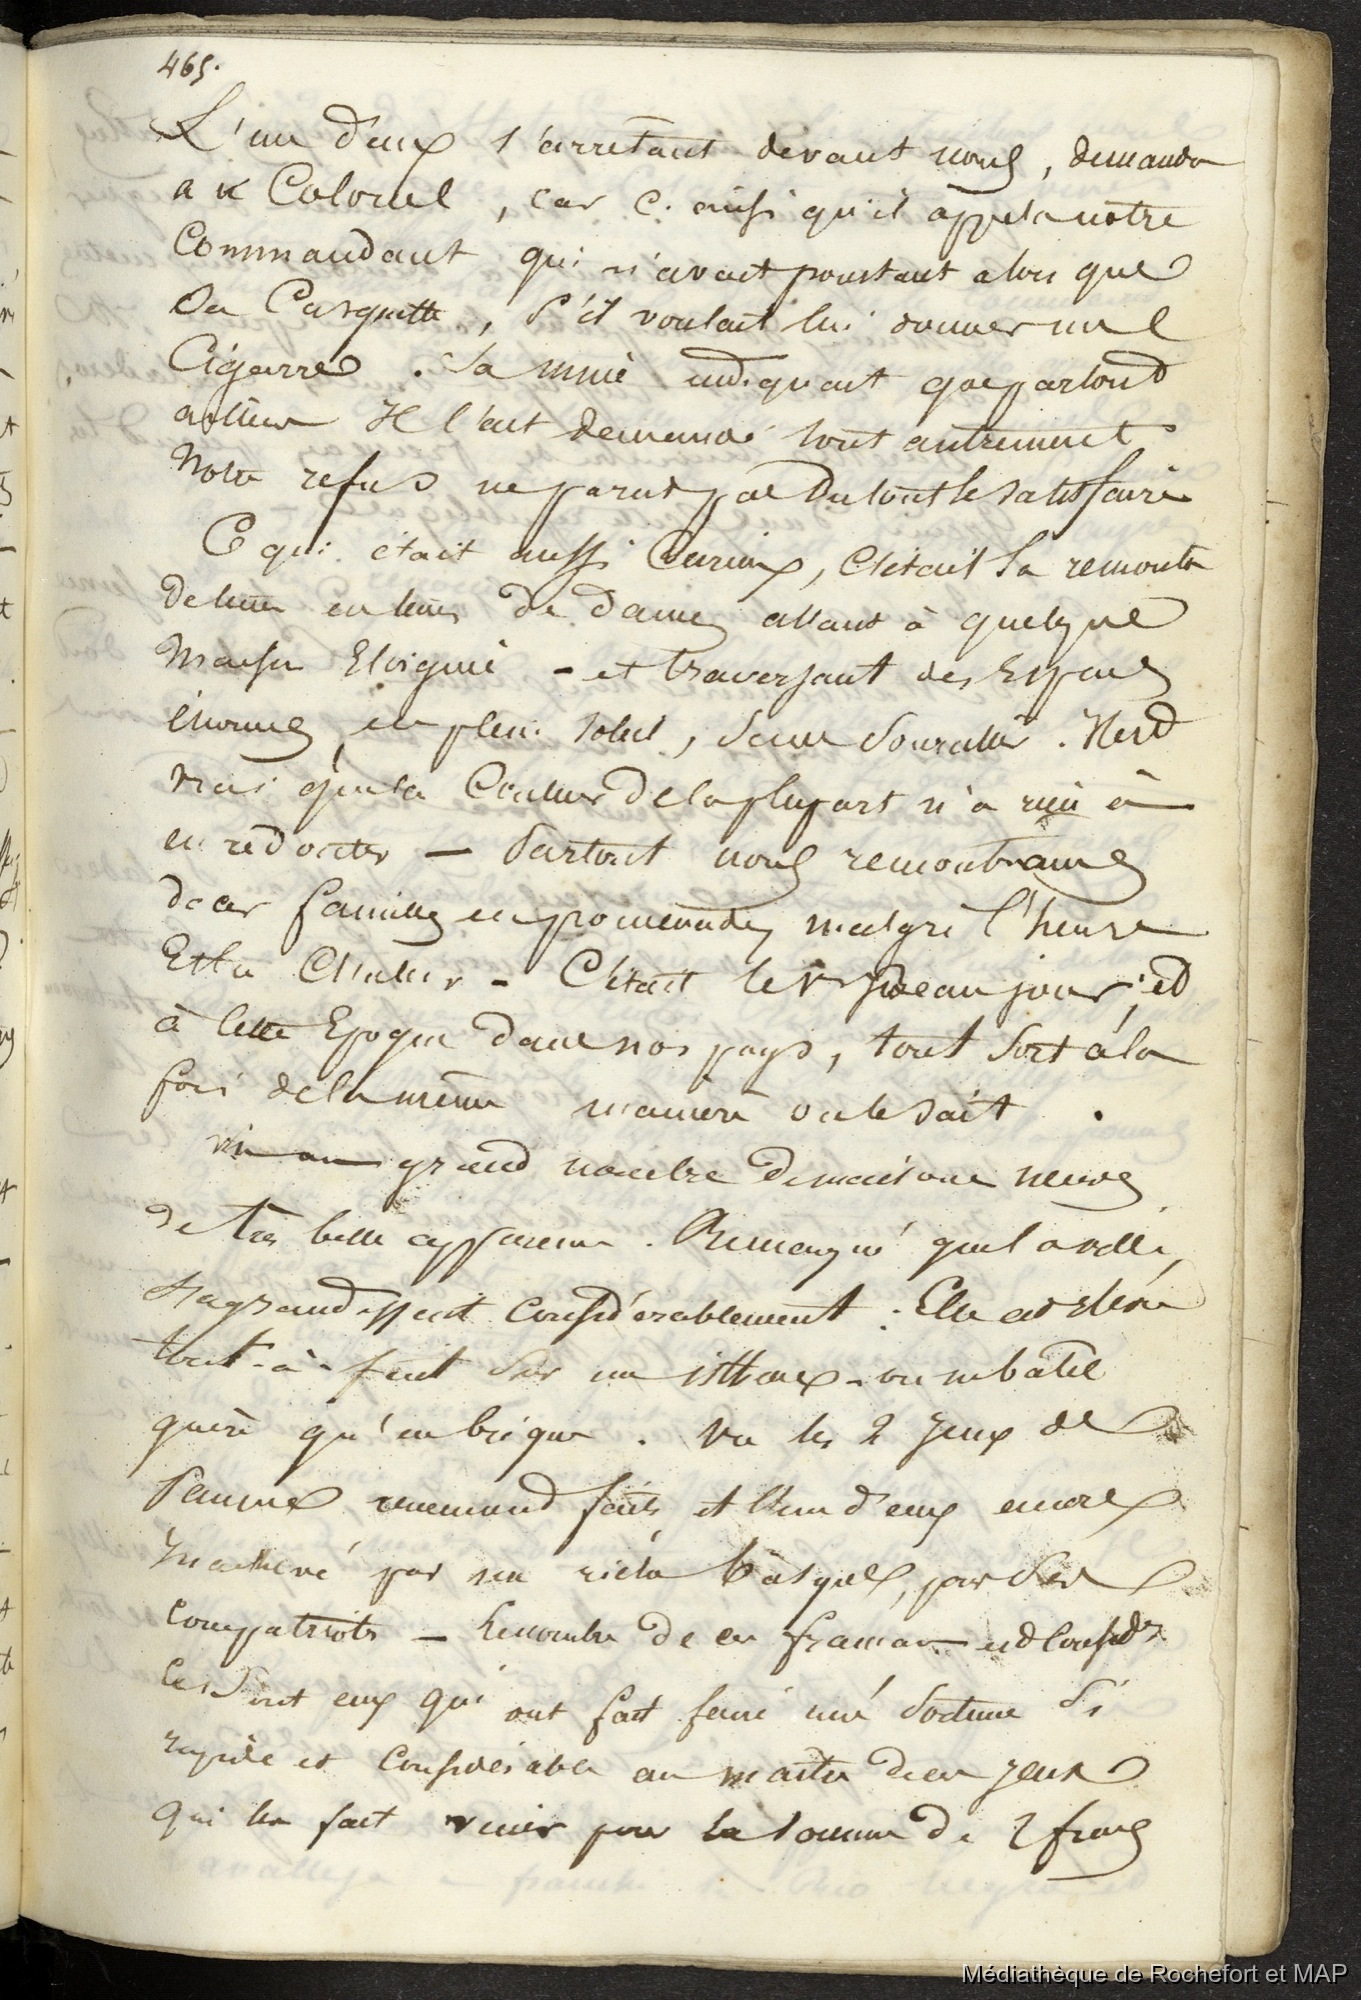 465.
L'un d'eux s'arrêtant devant nous, demanda
a u Colonel, car c. ainsi qu'il appela notre
Commandant qui n'avait pourtant alors que
Sa Casquette, s'il voulait lui donner une
Cigarre. Sa mine indiquait que partout
ailleurs Il l'eut demandé tout autrement
Notre refus ne parut pas du tout le satisfaire
Ce qui était aussi Curieux, C'était la
de dames allant à quelque
Maison Eloignée - et traversant des Espaces
énormes, en plein soleil, sans Sourciller. Il est
vrai que la Couleur de la plupart n'a rien à
en redouter — Partout nous rencontrames
de ces familles en promenades, malgré l'heure
Et la Chaleur - C'était le 1r beau jour, et
à cette Epoque dans nos pays, tout sort à la
fois de la même manière on le sait.
grand nombre de maisons neuves
de très belle apparence. Remarqué que la ville,
s'agrandissait considérablement. Elle est
tout-à-fait Sur un - on ne batit
guère qu'en brique. Vu les 2 Jeux de
Paumes récemment faits et l'un d'eux encore
Inachevé par un riche Basque, pour Ses
Compatriotes — Le nombre de ces français est Considr
ce sont eux qui ont fait faire une fortune Si
rapide et Considérable au maitre de ces Jeux
qui les fait venir pour la somme de 2 francs
Médiathèque de Rochefort et MAP